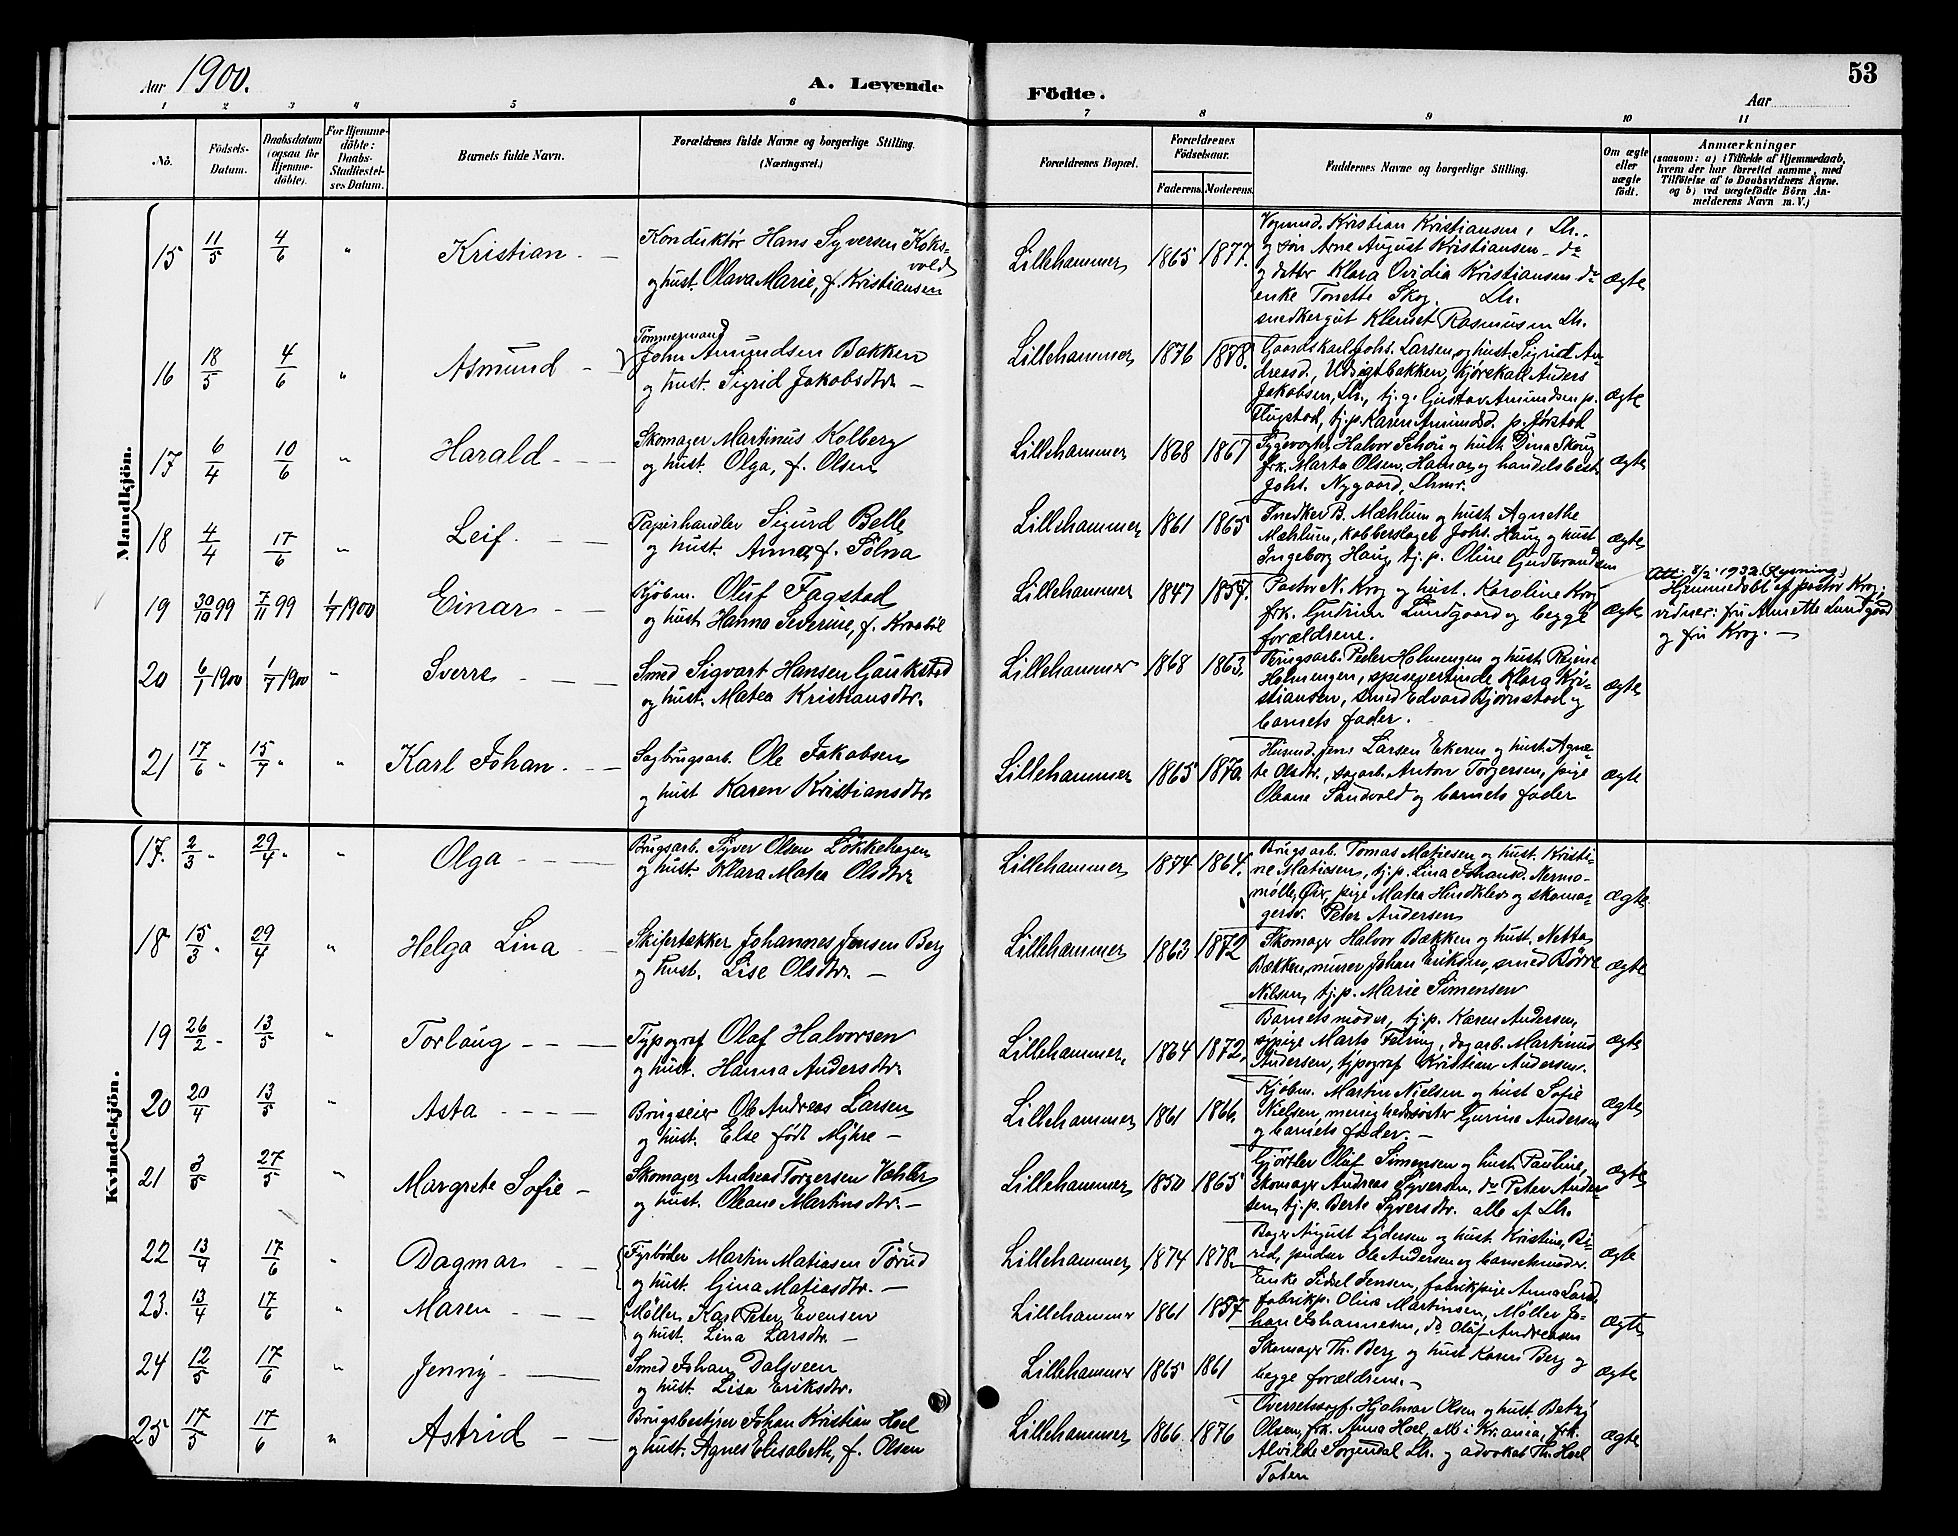 Aar 1900.
A. Levende Födte.
53
Aar
1 2 3 4 5 6 7 8 9 10 11
No.
Födsels-Datum.
Daabsdatum (ogsaa for Hjemme-döbte).
For Hjemme-döbte: Daabs-Stadfæstel-ses Datum.
Barnets fulde Navn.
Forældrenes fulde Navne og borgerlige Stilling. (Næringsvei.)
Forældrenes Bopæl.
Forældrenes Födselsaar.
Faderens. Moderens.
Faddernes Navne og borgerlige Stilling.
Om ægte eller uægte födt.
Anmærkninger
(saasom: a) i Tilfælde af Hjemmedaab, hvem der har forrettet samme, med Tilföielse af to Daabsvidners Navne. og b) ved uægtefödte Börn An-melderens Navn m. V.)
Mandkjön.
15 11/5 4/6 " Kristian. —
Konduktör Hans Syversen Koks-
vold
og hust. Olava Marie, f. Kristiansen
Lillehammer 1865 1877.
Kristian Kristiansen, Lh.
og søn Arne August Kristiansen do
og datter Klara Ovidia Kristiansen do
enke Tonette Skog. Lh.
snedkergut Klemet Rasmussen Lh.
ægte
16 18/5 4/6 " Asmund —
Tømmermand
John Amundsen Bakken
og hust. Sigrid Jakobsdtr. —
Lillehammer 1876 1878.
Gaardskarl Johs. Larsen og hust. Sigrid An-
dreasd., Udsigtbakken, kjørekarl Anders
Jakobsen, Lh., tj.g. Gustav Amundsen p.
Flugstad, tj.p. Karen Amundsd. p. Jørstad
ægte
17 6/4 10/6 " Harald — —
Skomager Martinus Kolberg
og hust. Olga, f. Olsen
Lillehammer 1868 1867
Sygevogter Halvor Schou og hust. Dina Skoug
frk. Marta Olsen, Hamar, og handelsbest.
Johs. Nygaard, Lhmr.
ægte
18 4/4 17/6 " Leif. — —
Papirhandler Sigurd Belle
og hust. Anna, f. Sölna
Lillehammer 1861 1865
Snedker B. Mæhlum og hust. Agnethe
Mæhlum, kobberslager Johs. Haug og hust.
Ingeborg Haug, tj.p. Oline Gudbrandsen
ægte
19 30/10 99 7/11 99 1/7 1900 Einar — —
Kjöbm. Oluf Fagstad
og hust. Hanna Severine, f. Kraabøl
Lillehammer 1847 1857.
Pastor N. Krog og hust. Karoline Krog
frk. Gudrun Lundgaard og begge
forældrene.
ægte
Att. 8/2 1932. (Lysning)
Hjemmedøbt af pastor Krog;
vidner: fru Annette Lundgaard
og fru Krog. —
20 6/1 1900 1/7 1900 " Sverre — —
Smed Sigvart Hansen Gaukstad
og hust. Matea Kristiansdtr.
Lillehammer 1868 1863.
Brugsarb. Peder Holmengen og hust. Regine
Holmengen, spisevertinde Klara Kri-
stiansen, smed Edvard Bjørnstad og
barnets fader.
ægte
21 17/6 " 15/7 " " Karl Johan. —
Sagbrugsarb. Ole Jakobsen
og hust Karen Kristiansdtr.
Lillehammer 1865 1870.
Husmd. Jens Larsen Ekeren og hust. Agne-
te Olsdtr., sagarb. Anton Torgersen, pige
Oleane Sandvold og barnets fader
ægte
Kvindekjön.
17. 2/3 " 29/4 " " Olga — — —
Brugsarb. Syver Olsen Løkkehagen
og hust. Klara Matea Olsdtr
Lillehammer 1874 1864.
Brugsarb. Tomas Matiesen og hust. Kristi-
ne Matiasen, tj.p. Lina Johansd. Nermo-
mølle, Øier, pige Matea Hundklev og skoma-
gersv. Peter Andersen
ægte.
18 15/3 " 29/4 " Helga Lina —
Skifertækker Johannes Jensen Berg
og hust. Lise Olsdtr. —
Lillehammer 1863 1872
Skomager Halvor Bækken og hust. Netta
Bækken, murer Johan Eriksen, smed Börre
Nilsen, tj.p. Marie Simensen
ægte
19 26/2 - 13/5 " Torlaug — —
Typograf Olaf Halvorsen
og hust. Hanna Andersdtr.
Lillehammer. 1864 1872.
Barnets moder, tj.p. Karen Andersen,
sypige Marta Feiring, dagarb. Martinus
Andersen, typograf Kristian Andersen.
ægte
20 20/4 13/5 " Asta — — —
Brugseier Ole Andreas Larsen
og hust. Else født Myhre —
Lillehammer 1861 1866.
Kjøbm. Martin Nielsen og hust Sofie
Nielsen, menighedssøster Gurine Andersen
og barnets fader. —
ægte
21 3/5 27/5 " Margrete Sofie —
Skomager Andreas Torgersen Vahler
og hust. Oleane Martinsdtr. —
Lillehammer 1850 1865
Gjørtler Oluf Simensen og hust. Pauline,
Skomager Andreas Syversen, do Peter Ander-
sen, tj.p. Berte Syversdtr. alle af Lh.
ægte
22 13/4 17/6 " Dagmar —
Fyrbøder Martin Matiasen Törud
og hust. Gina Matiasdtr. —
Lillehammer 1874 1878.
Bager August Lydersen og hust Kristine, Bi-
rid, Ole Andersen og barnets moder.
ægte
23. 13/4 17/6 " Maren — —
Møller Karl Peter Evensen
og hust. Lina Larsdtr. —
Lillehammer 1861 1857
Enke Sidsel Jensen, fabrikpige Anna Larsd
fabrikp. Olina Martinsen, Møller Jo-
han Johannesen, do Oluf Andreasen
ægte
24 12/5 17/6 " Jenny — —
Smed Johan Dalsveen
og hust. Lisa Eriksdtr.
Lillehammer 1865 1861
Skomager Th. Berg og hust Karen Berg og
begge forældrene. —
ægte
25 17/5 17/6 " Astrid — —
Brugsbestyrer Johan Kristian Hoel
og hust. Agnes Elisabeth, f. Olsen
Lillehammer 1866 1876
Overretssagf. Hjalmar Olsen og hust. Betzy
Olsen, frk. Anna Hoel, alle i Kr.ania, frk.
Alvilde Sorgendal Lh. og advokat Th. Hoel
Toten
ægte